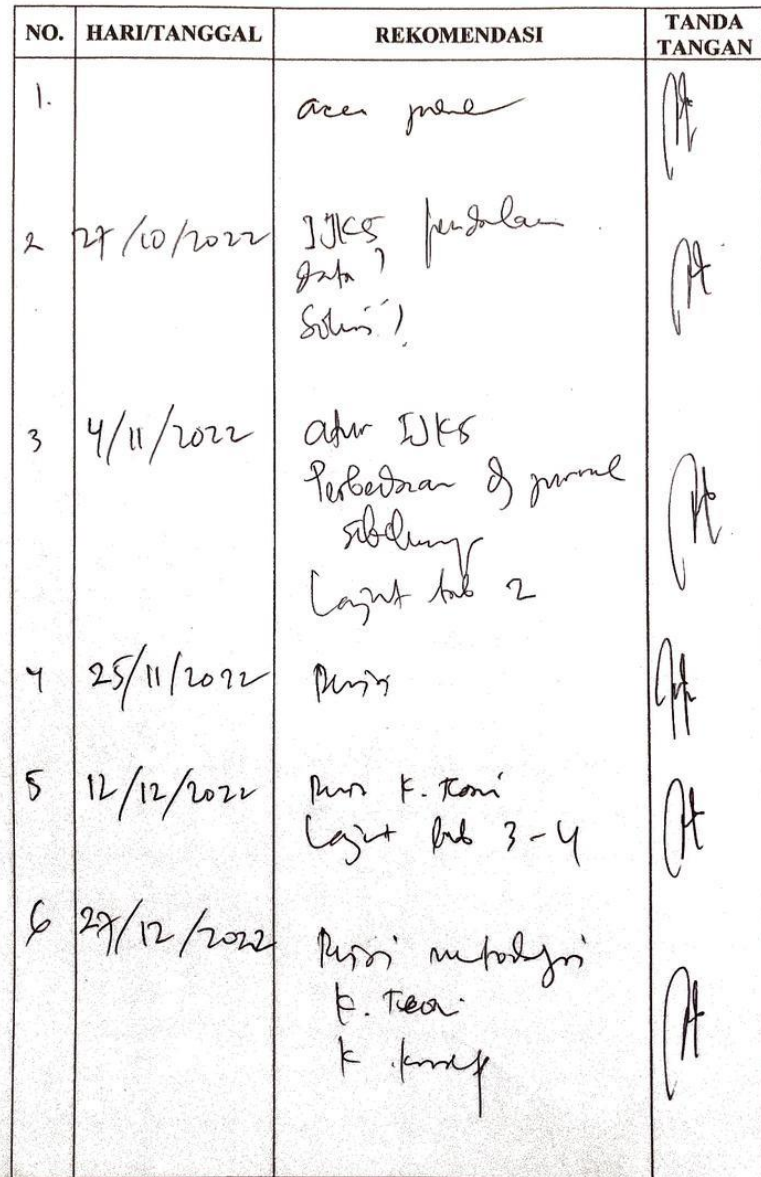 NO. HARI/TANGGAL REKOMENDASI TANDA TANGAN
1. acc
2 27/10/2022 IJKS pendahuluan
data?
Solusi?
3 4/11/2022 atur IJKS
Perbedaan dg jurnal
sebelumnya
Lanjut bab 2
4 25/11/2022 Revisi
5 12/12/2022 Revisi K. Teori
Lanjut bab 3-4
6 27/12/2022 Revisi metodologi
K. Teori
K. konsep